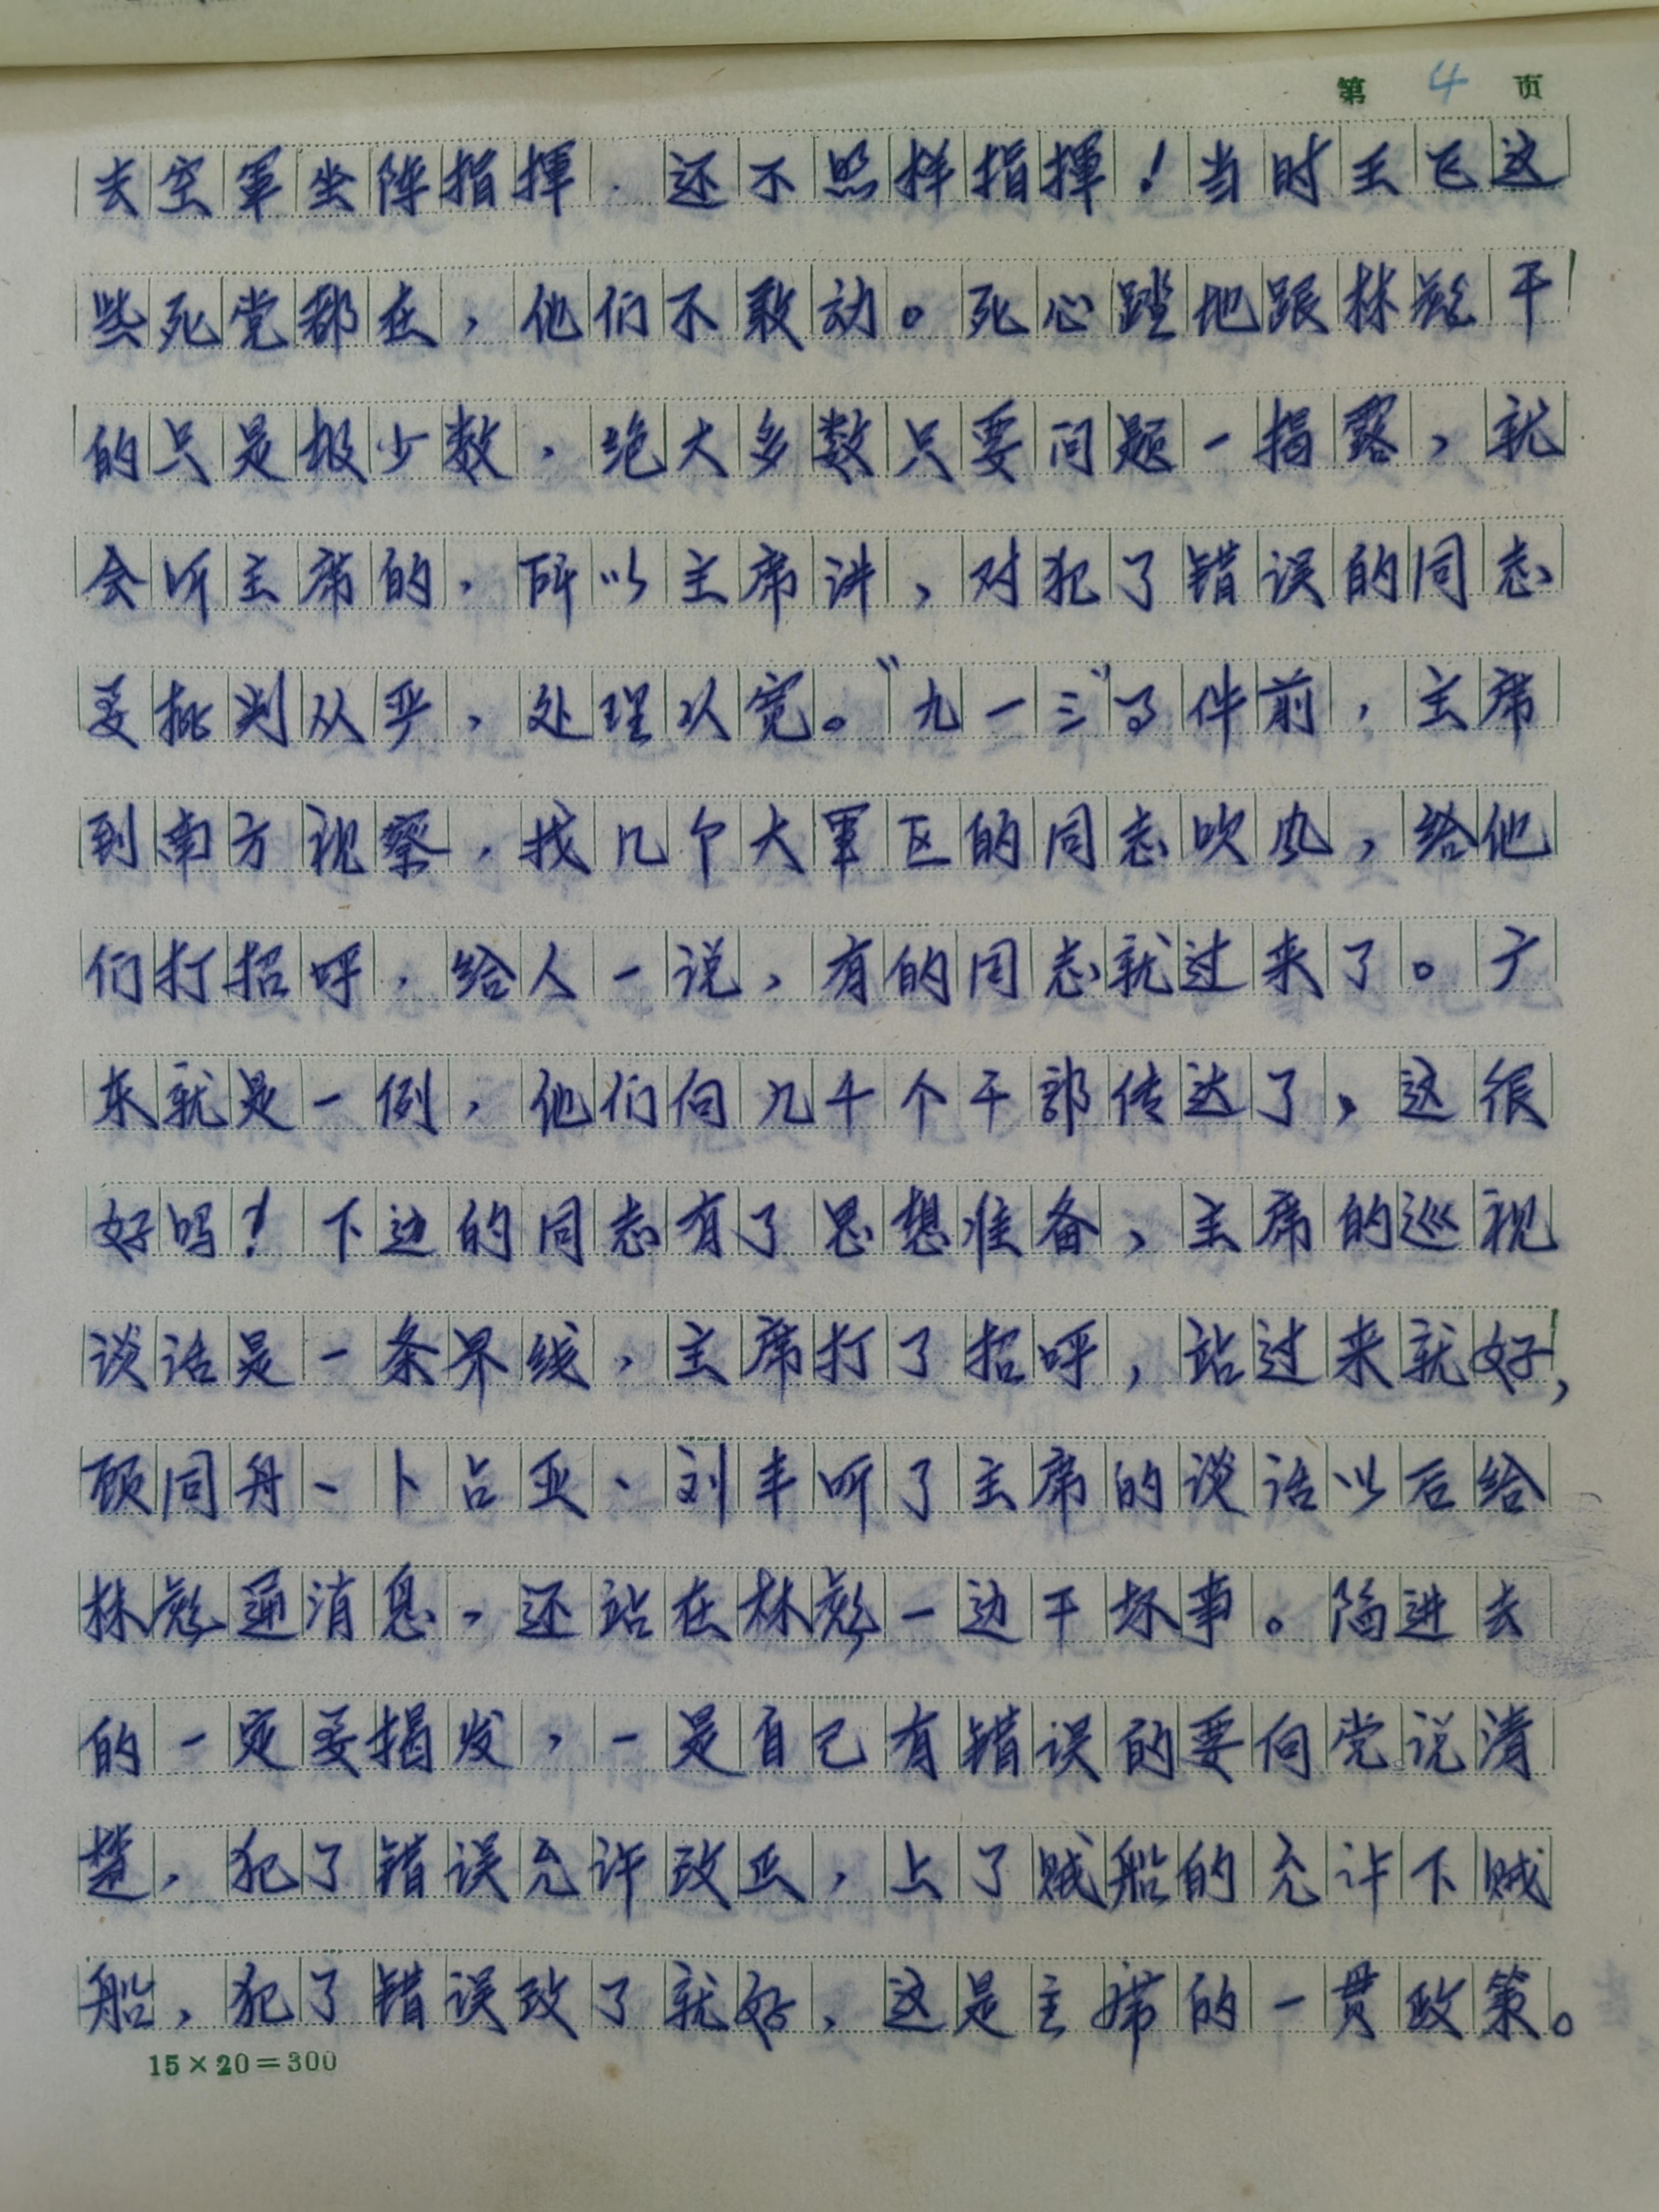 第 4 页
去空軍坐阵指揮，还不照样指揮！当时王飞这
些死党都在，他们不敢动。死心蹋地跟林彪干
的只是极少数，绝大多数只要问题一揭露，就
会听主席的，所以主席讲，对犯了错误的同志
要批判从严，处理从宽。“九一三”事件前，主席
到南方视察，找几个大軍区的同志吹风，给他
们打招呼，给人一说，有的同志就过来了。广
东就是一例，他们向几十个干部传达了，这很
好吗！下边的同志有了思想准备，主席的巡视
谈话是一条界线，主席打了招呼，站过来就好，
顾同舟、卜占亚、刘丰听了主席的谈话以后给
林彪通消息，还站在林彪一边干坏事。陷进去
的一定要揭发，一是自己有错误的要向党说清
楚，犯了错误允许改正，上了贼船的允许下贼
船，犯了错误改了就好，这是主席的一贯政策。
15×20=300